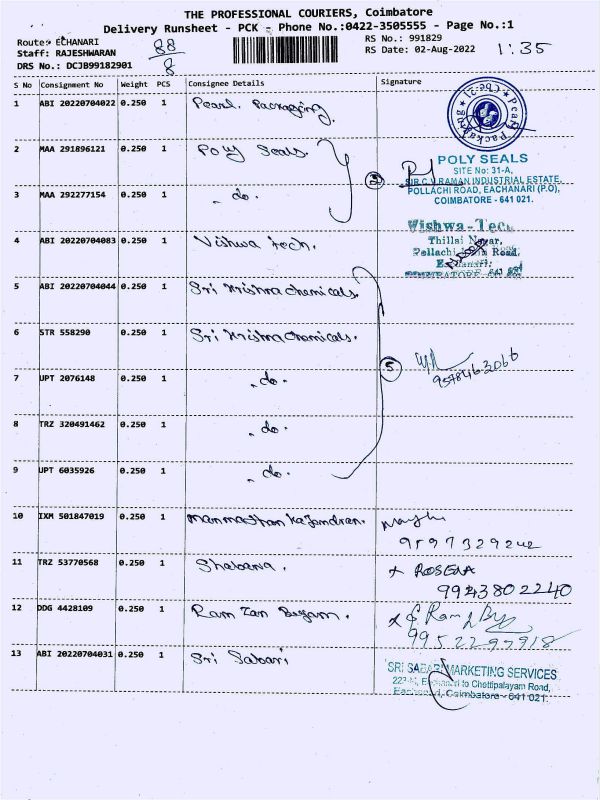 THE PROFESSIONAL COURIERS, Coimbatore
Delivery Runsheet - PCK - Phone No.:0422-3505555 - Page No.:1
Route: ECHANARI 88 RS No.: 991829
Staff: RAJESHWARAN RS Date: 02-Aug-2022 1:35
DRS No.: DCJB99182901 8
S No Consignment No Weight PCS Consignee Details Signature
1 ABI 20220704022 0.250 1 Pearl Packaging.
Pearl Packaging
2 MAA 291896121 0.250 1 Poly Seals.
POLY SEALS
SITE No: 31-A,
SIR.C.V.RAMAN INDUSTRIAL ESTATE,
POLLACHI ROAD, EACHANARI (P.O),
COIMBATORE - 641 021.
3 MAA 292277154 0.250 1 - do.
4 ABI 20220704083 0.250 1 Vishwa tech.
Vishwa-Tech
Thillai Nagar,
Pollachi Main Road,
5 ABI 20220704044 0.250 1 Sri Krishna chemicals.
6 STR 558290 0.250 1 Sri Krishna Chemicals.
7 UPT 2076148 0.250 1 - do. 5 9578463066
8 TRZ 320491462 0.250 1 - do.
9 UPT 6035926 0.250 1 - do.
10 IXM 501847019 0.250 1
9597329242
11 TRZ 53770568 0.250 1 Shabana. x ROSENA
9943802240
12 DDG 4428109 0.250 1 Ram Zan Begam.
9952297918
13 ABI 20220704031 0.250 1 Sri Sabari
SRI SABARI MARKETING SERVICES
to Chettipalayam Road,
Coimbatore - 641 021.